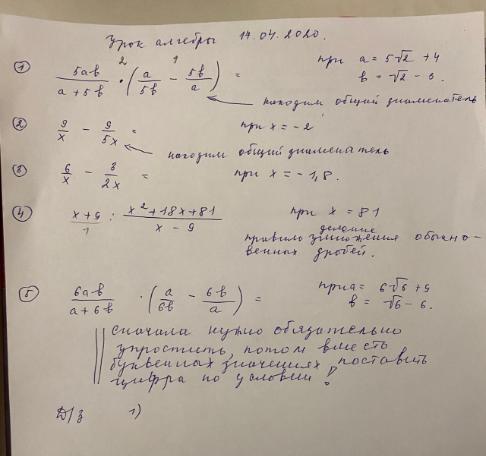 Урок алгебры 14.04.2020.
① 5ab/(a+5b) · (a/5b − 5b/a) = при a = 5√2 + 4
2 1
b = √2 − 6.
находим общий знаменатель
② 9/x − 9/5x = при x = −2
находим общий знаменатель
③ 6/x − 3/2x = при x = −1,8.
④ (x+9)/1 : (x²+18x+81)/(x−9) при x = 81
деление
правило умножения обыкно-
венных дробей.
⑤ 6ab/(a+6b) · (a/6b − 6b/a) = при a = 6√6 + 9
b = √6 − 6.
сначала нужно обязательно
упростить, потом вместо
буквенных значениях, поставить
цифра по условии!
Д/з 1)